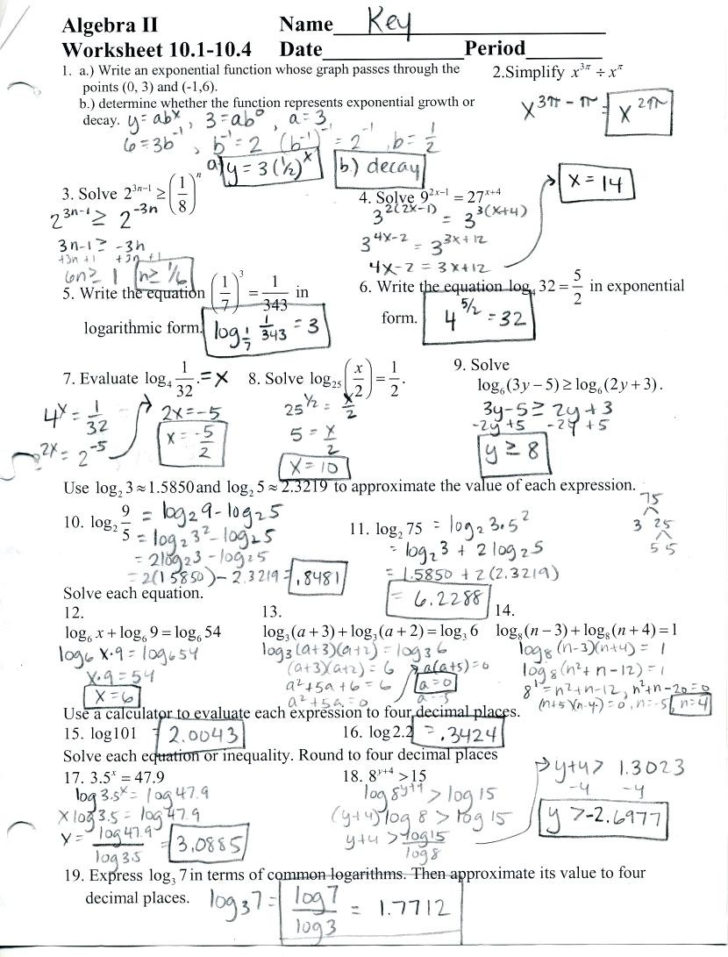 Algebra II Name Key
Worksheet 10.1-10.4 Date Period
1. a.) Write an exponential function whose graph passes through the points (0, 3) and (-1,6).
b.) determine whether the function represents exponential growth or decay.
y = abˣ, 3 = ab⁰, a = 3
6 = 3b⁻¹, b⁻¹ = 2 (b⁻¹)⁻¹ = 2⁻¹, b = 1/2
a) y = 3(½)ˣ b) decay
2.Simplify x^(3π) ÷ x^π
x^(3π - π) = x^(2π)
3. Solve 2^(3n-1) ≥ (1/8)^n
2^(3n-1) ≥ 2^(-3n)
3n-1 ≥ -3n
+3n +1 +3n +1
6n ≥ 1 n ≥ 1/6
4. Solve 9^(2x-1) = 27^(x+4)
3^(2(2x-1)) = 3^(3(x+4))
3^(4x-2) = 3^(3x+12)
4x-2 = 3x+12
x = 14
5. Write the equation (1/7)³ = 1/343 in logarithmic form.
log_(1/7) 1/343 = 3
6. Write the equation log₄ 32 = 5/2 in exponential form.
4^(5/2) = 32
7. Evaluate log₄ 1/32. = x
4ˣ = 1/32
2^(2x) = 2⁻⁵
2x = -5
x = -5/2
8. Solve log₂₅ (x/2) = 1/2.
25^(1/2) = x/2
5 = x/2
x = 10
9. Solve
log₆(3y-5) ≥ log₆(2y+3).
3y-5 ≥ 2y+3
-2y+5 -2y+5
y ≥ 8
Use log₂ 3 ≈ 1.5850 and log₂ 5 ≈ 2.3219 to approximate the value of each expression.
10. log₂ 9/5 = log₂9 - log₂5
= log₂3² - log₂5
= 2log₂3 - log₂5
= 2(1.5850) - 2.3219 = .8481
11. log₂ 75 = log₂ 3·5²
= log₂3 + 2log₂5
= 1.5850 + 2(2.3219)
= 6.2288
75
3 25
5 5
Solve each equation.
12.
log₆ x + log₆ 9 = log₆ 54
log₆ x·9 = log₆54
x·9 = 54
x = 6
13.
log₃(a+3) + log₃(a+2) = log₃ 6
log₃(a+3)(a+2) = log₃6
(a+3)(a+2) = 6
a²+5a+6 = 6
a²+5a = 0
a(a+5) = 0
a = 0
14.
log₈(n-3) + log₈(n+4) = 1
log₈(n-3)(n+4) = 1
log₈(n²+n-12) = 1
8¹ = n²+n-12, n²+n-20 = 0
(n+5)(n-4) = 0, n = -5, n = 4
Use a calculator to evaluate each expression to four decimal places.
15. log101 = 2.0043
16. log 2.2 = .3424
Solve each equation or inequality. Round to four decimal places
17. 3.5ˣ = 47.9
log 3.5ˣ = log 47.9
x log 3.5 = log 47.9
x = log 47.9 / log 3.5 = 3.0885
18. 8^(y+4) > 15
log 8^(y+4) > log 15
(y+4) log 8 > log 15
y+4 > log15 / log 8
y+4 > 1.3023
-4 -4
y > -2.6977
19. Express log₃ 7 in terms of common logarithms. Then approximate its value to four decimal places.
log₃7 = log 7 / log 3 = 1.7712